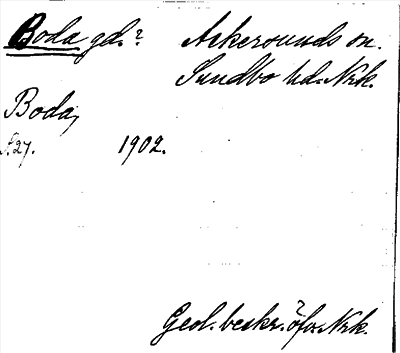 Boda gd.? Askersunds sn.
Sundbo hd. Nrk.
Boda,
S.27. 1902.
Geol. beskr. öfv. Nrk.